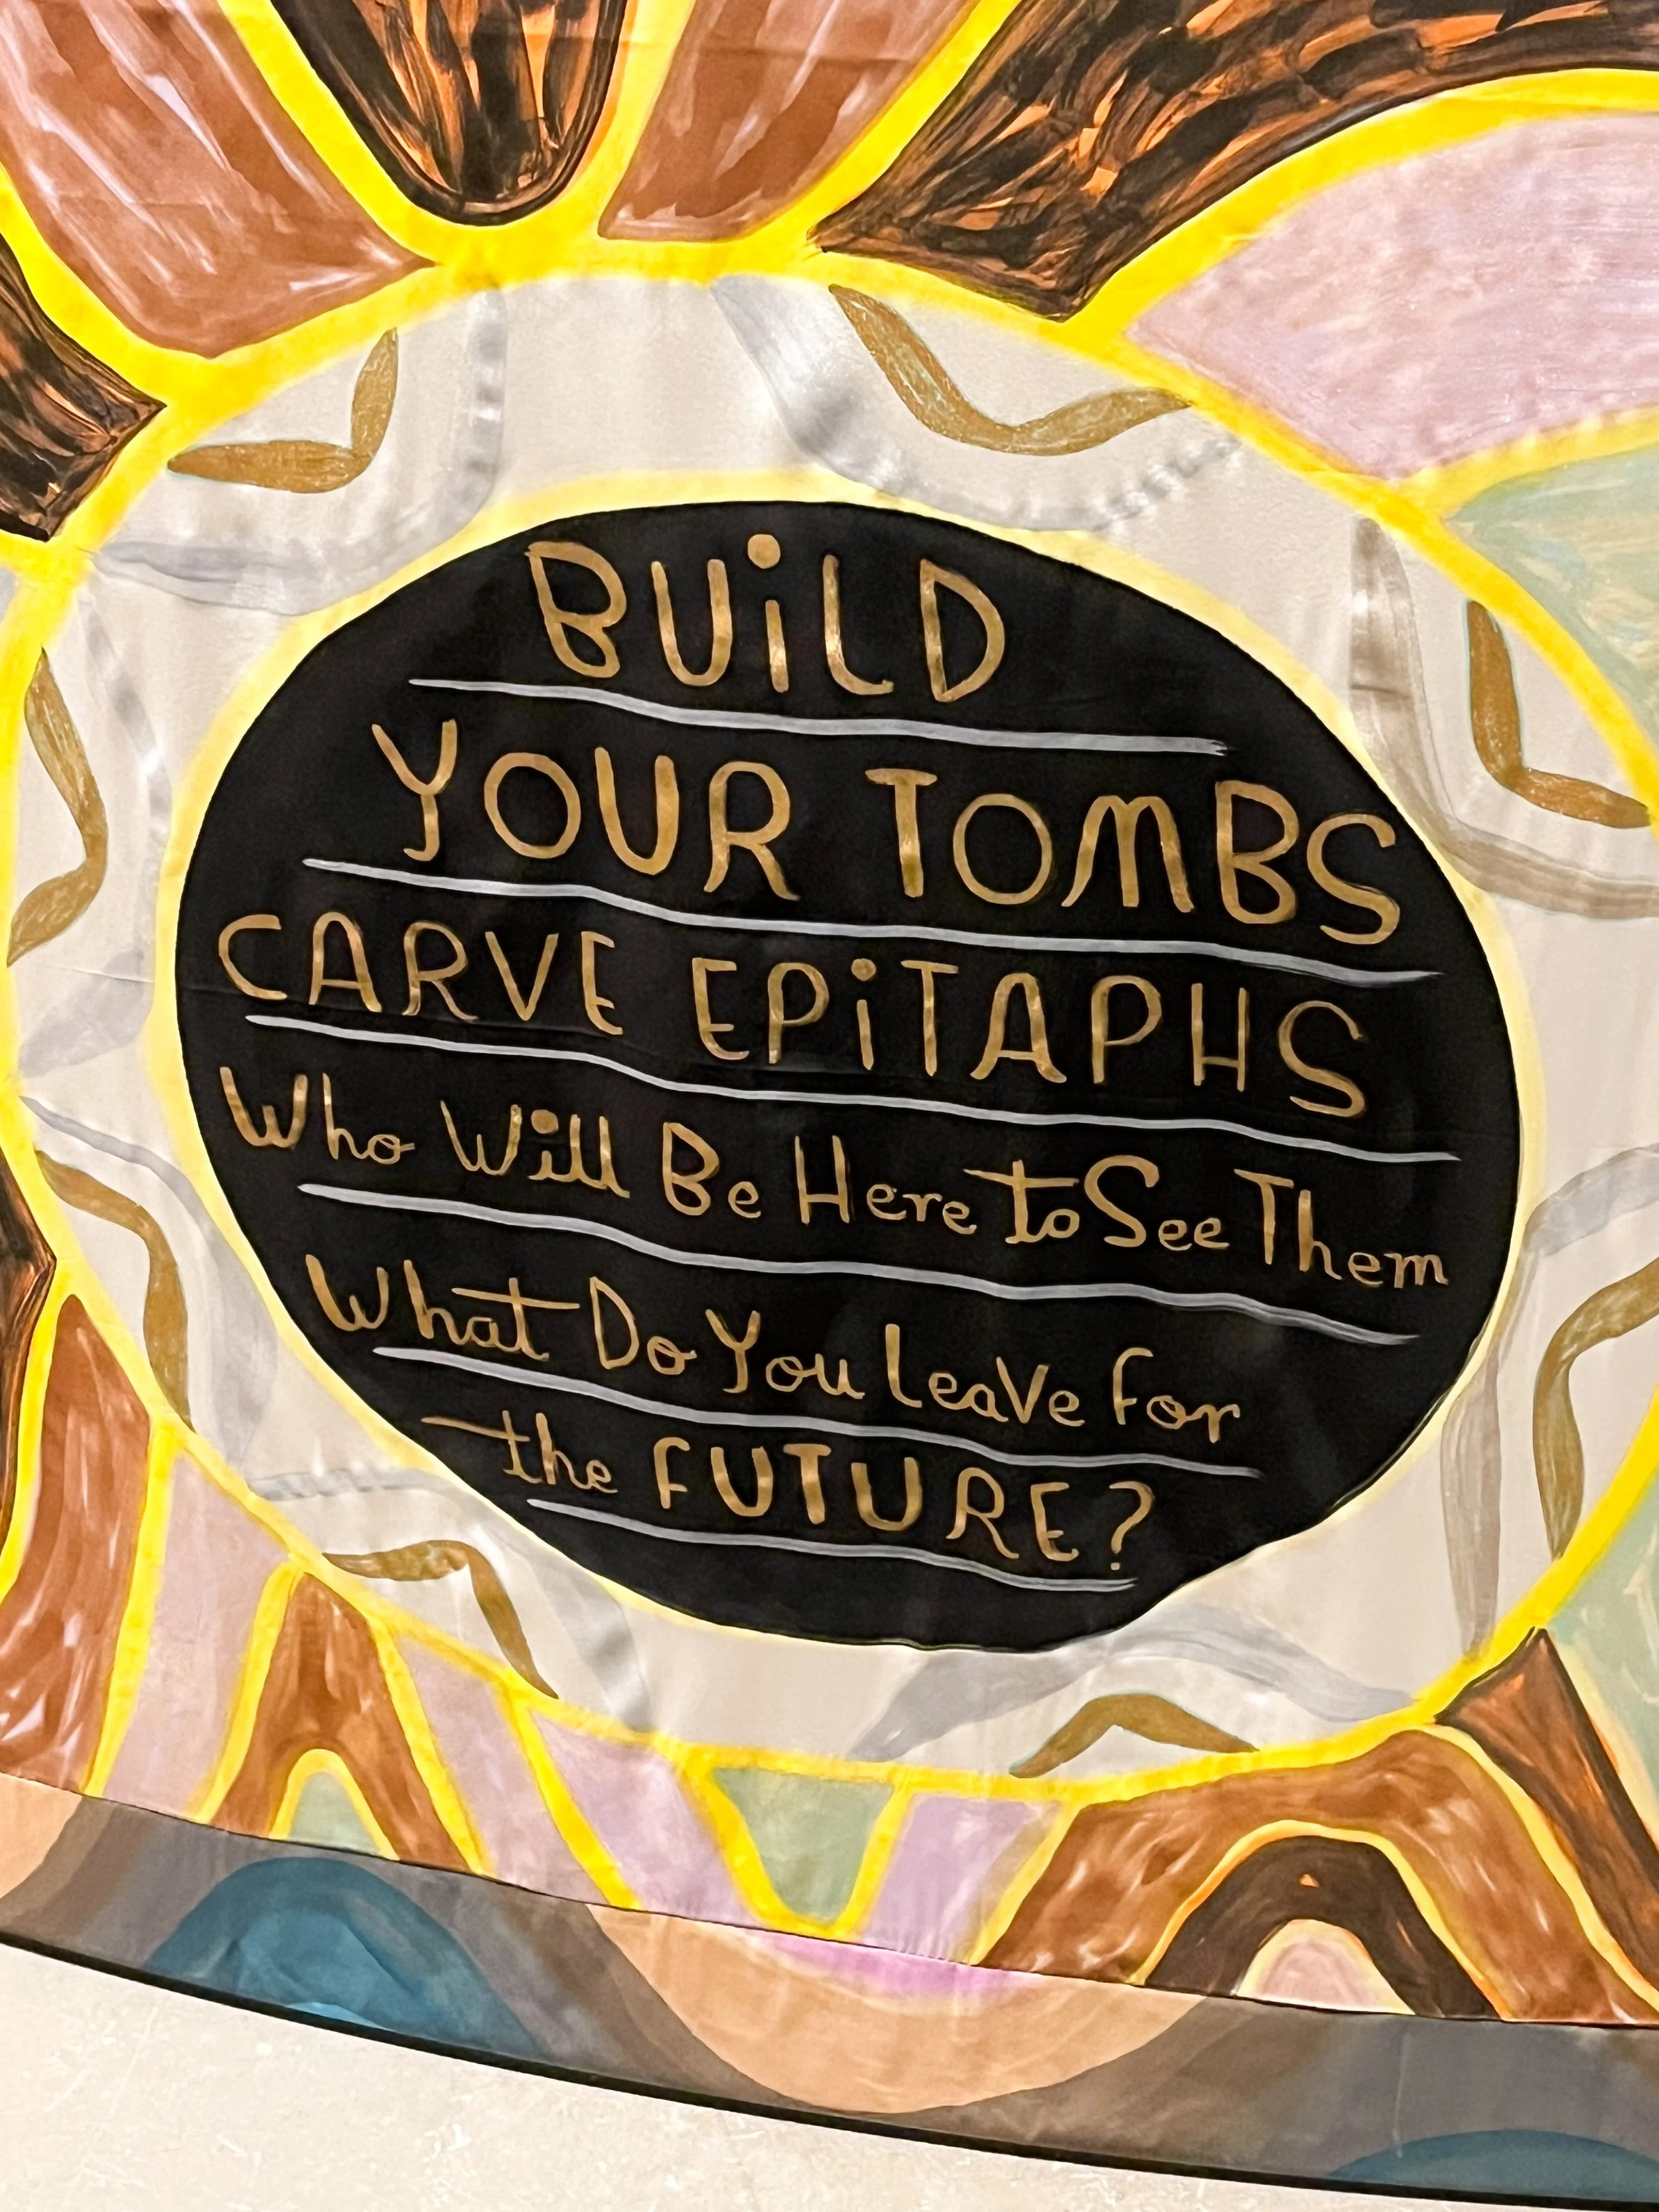 BUiLD
YOUR TOMBS
CARVE EPiTAPHS
Who Will Be Here to See Them
What Do You Leave For
the FUTURE?